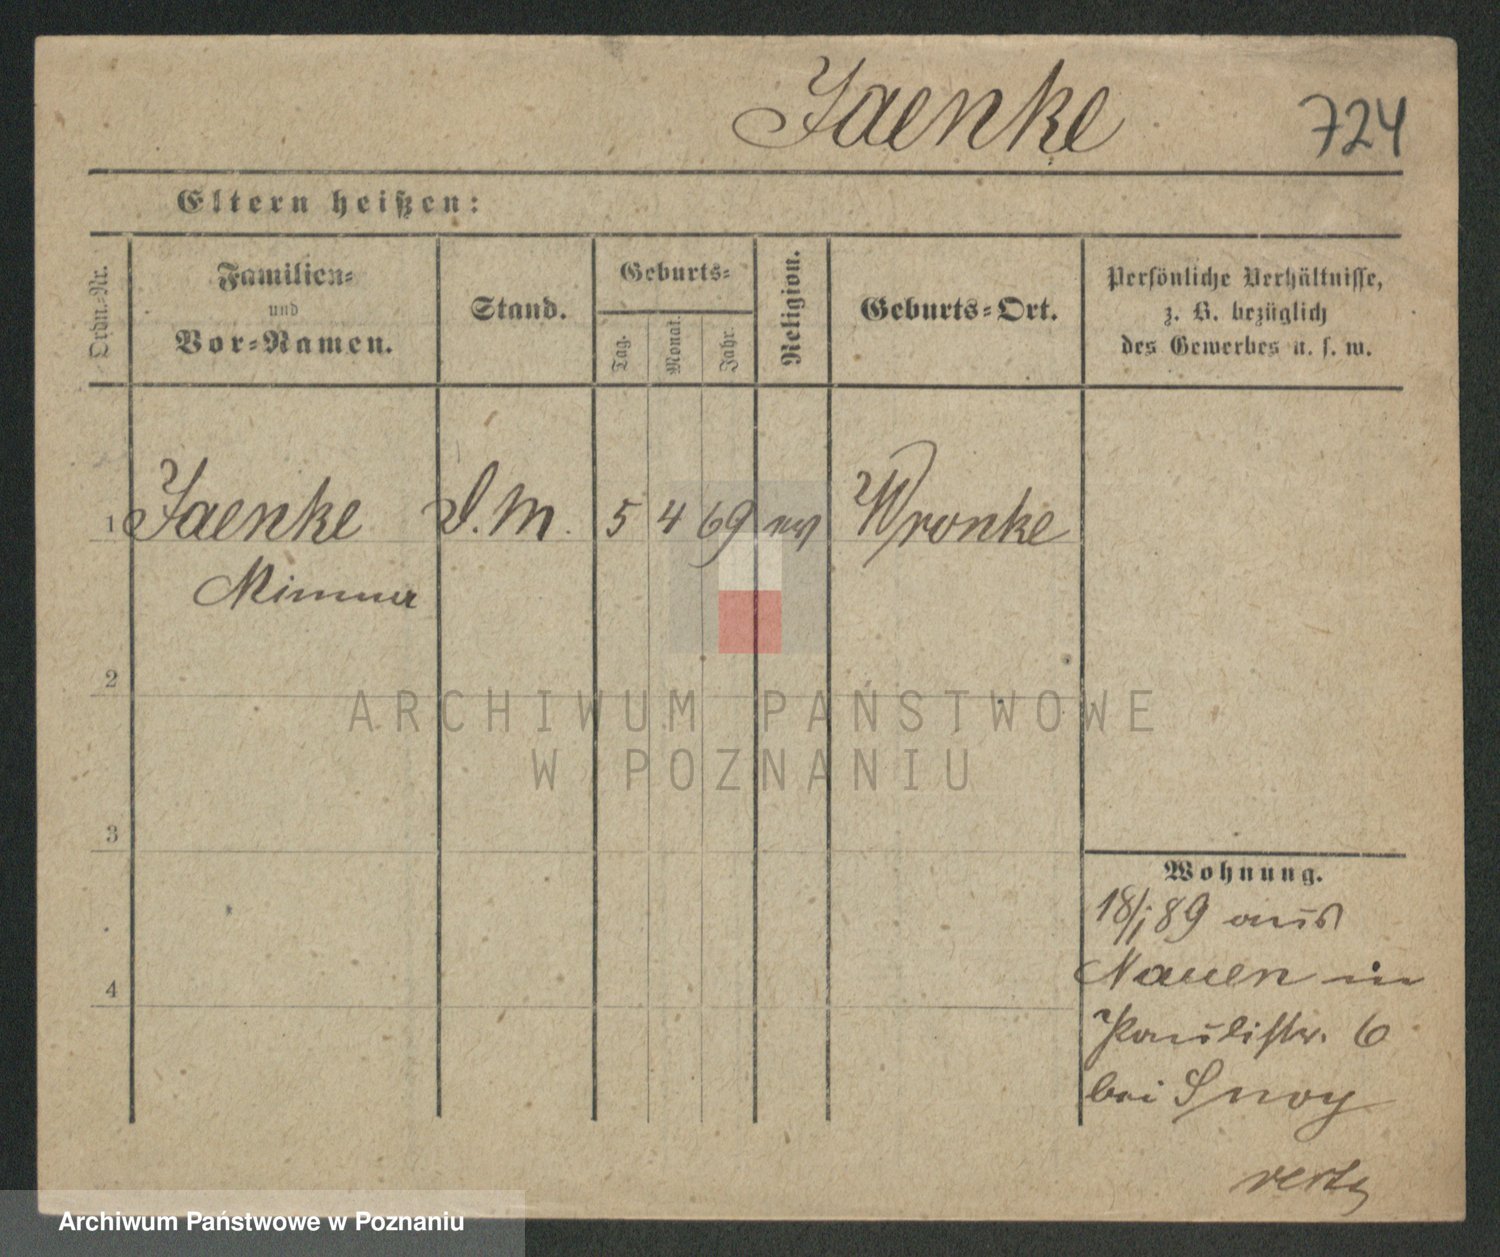 Jaenke 724
Eltern heißen:
Ordn.-Nr.
Familien-
und
Vor-Namen.
Stand.
Geburts-
Tag.
Monat.
Jahr.
Religion.
Geburts-Ort.
Persönliche Verhältnisse,
z. B. bezüglich
des Gewerbes u. s. w.
1 Jaenke D.M. 5 4 69 ev Wronke
Minna
2
3
4
Wohnung.
18/1 89 aus
Nauen in
Paulistr. 6
bei
ARCHIWUM PAŃSTWOWE
W POZNANIU
Archiwum Państwowe w Poznaniu